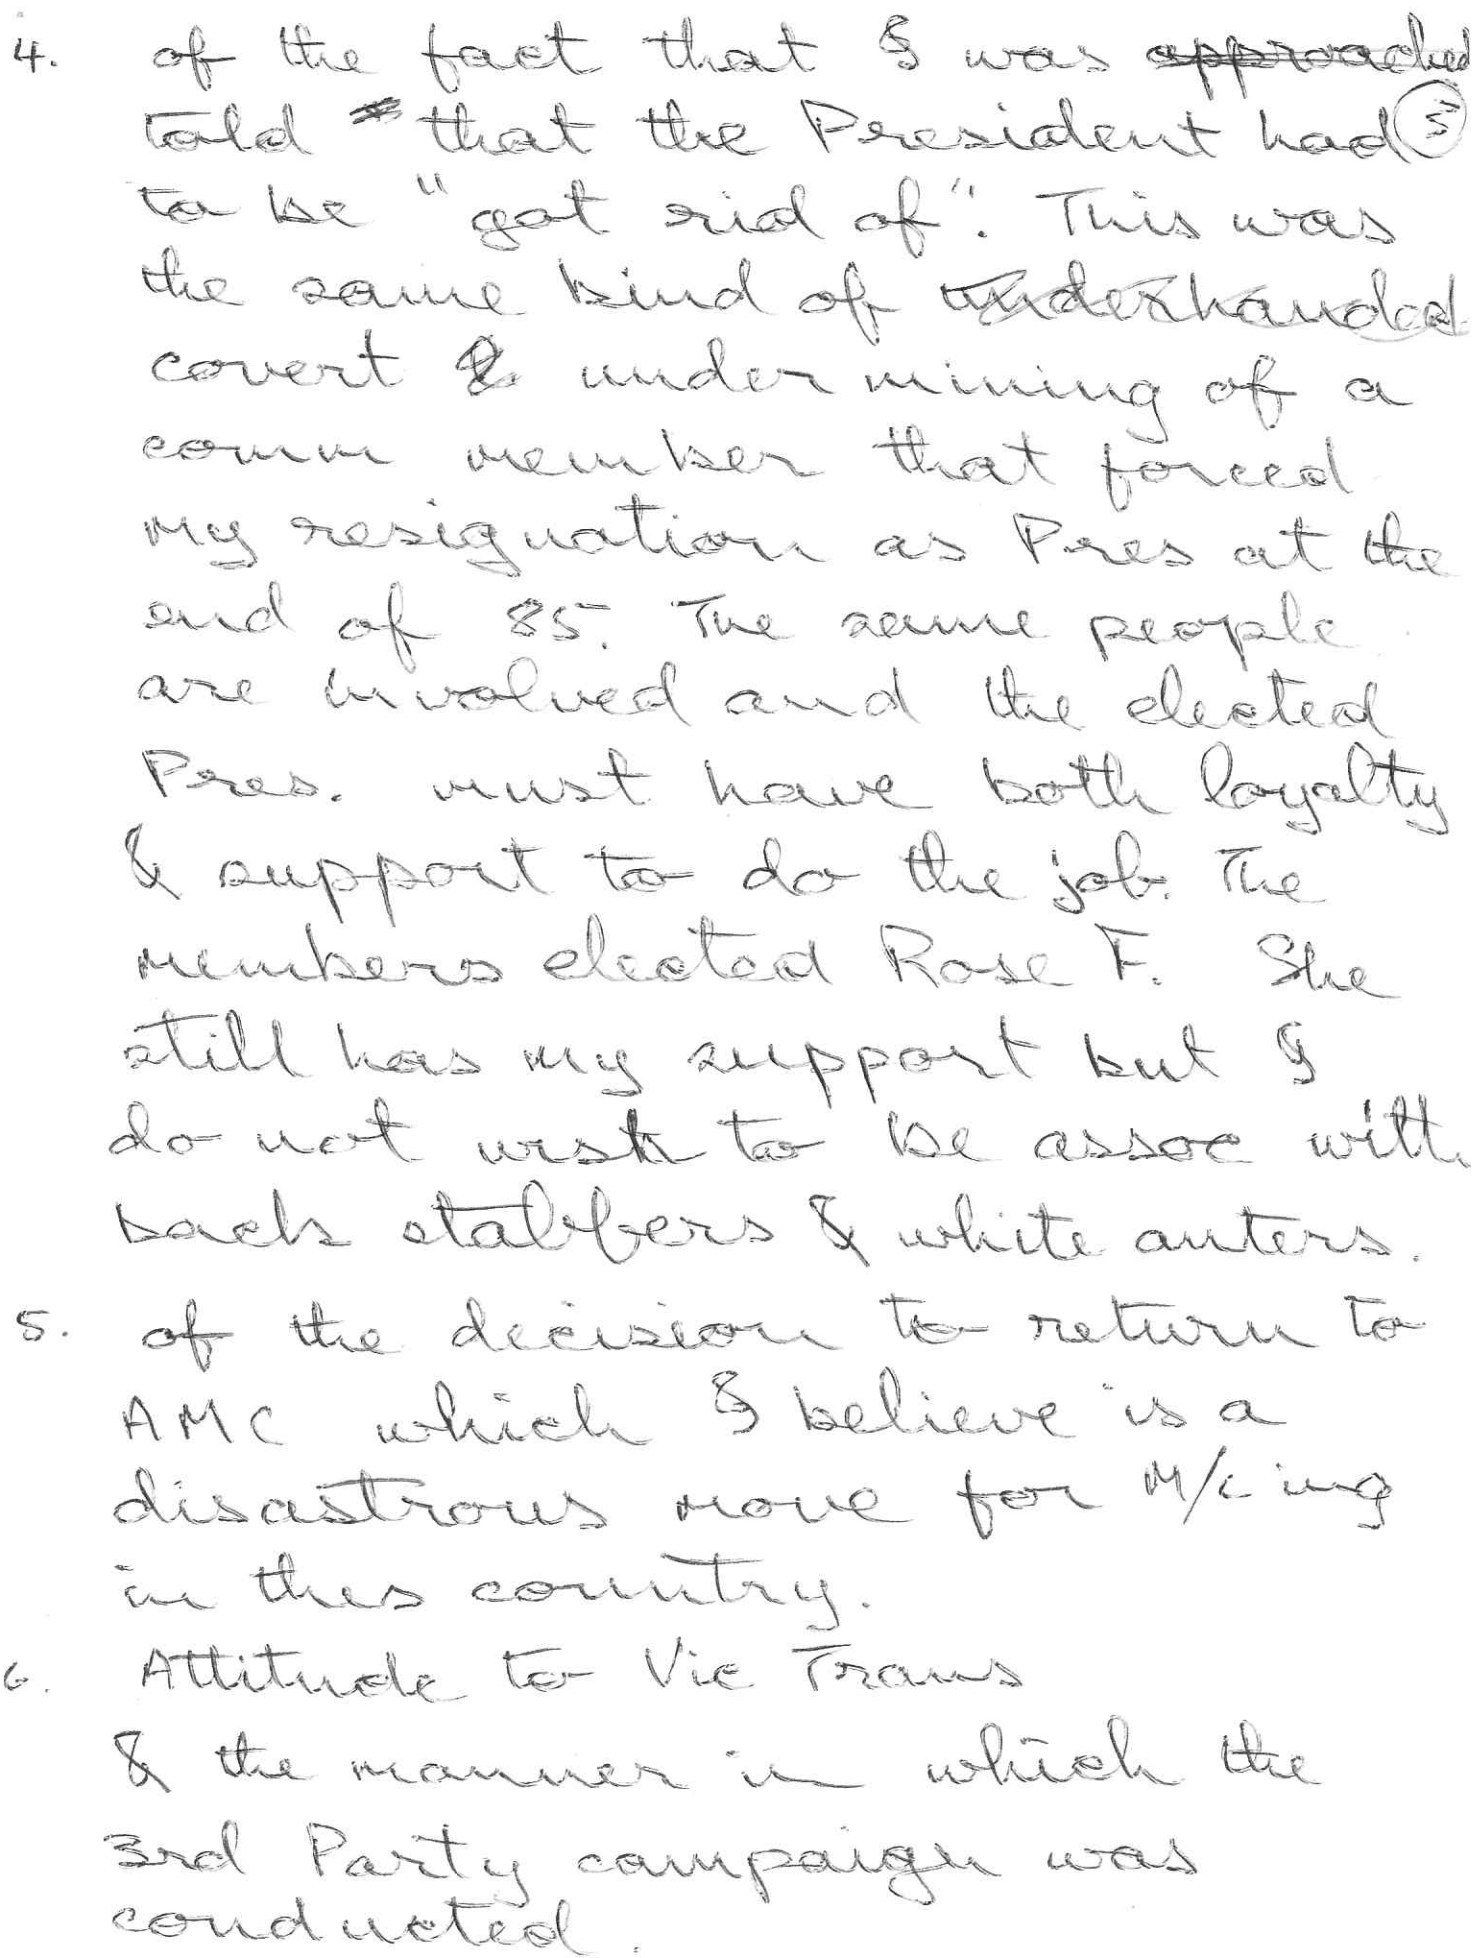 4. of the fact that I was approached
told that the President had (5)
to be "got rid of". This was
the same kind of underhanded
covert & undermining of a
comm member that forced
my resignation as Pres at the
end of 85. The same people
are involved and the elected
Pres. must have both loyalty
& support to do the job. The
members elected Rose F. She
still has my support but I
do not wish to be assoc with
back stabbers & white anters.
5. of the decision to return to
AMC which I believe is a
disastrous move for M/c ing
in this country.
6. Attitude to Vic Trans
& the manner in which the
3rd Party campaign was
conducted.